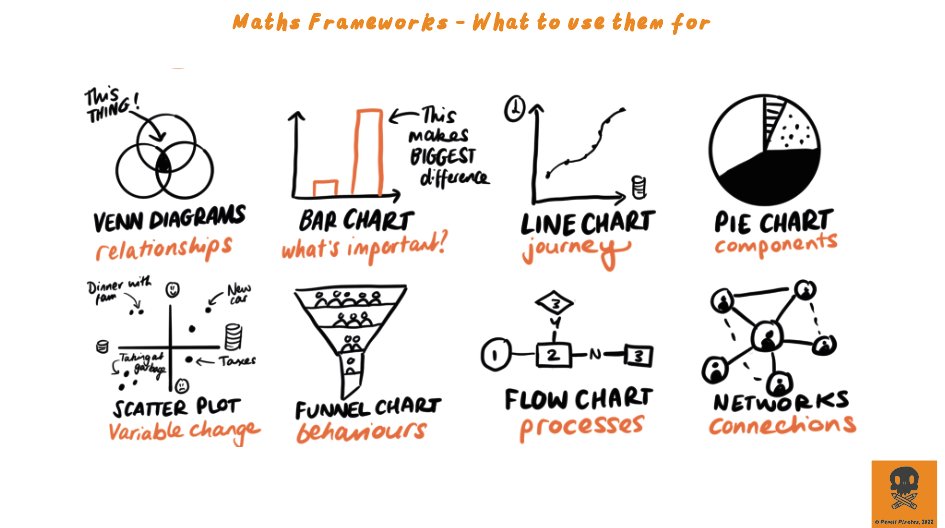 Maths Frameworks - What to use them for
This
THING!
VENN DIAGRAMS
relationships
This
makes
BIGGEST
difference
BAR CHART
what's important?
LINE CHART
journey
PIE CHART
components
Dinner with
fam
New
car
Taking out
garbage
Taxes
SCATTER PLOT
Variable change
FUNNEL CHART
behaviours
3
Y
1
2
N
3
FLOW CHART
processes
NETWORKS
connections
© Pencil Pirates, 2022